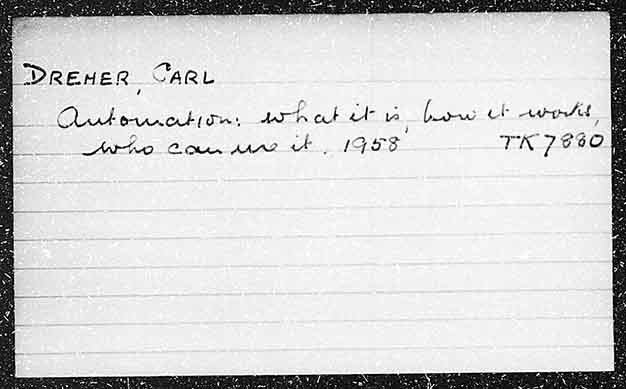 DREHER, CARL
Automation: what it is, how it works,
who can use it. 1958 TK7880